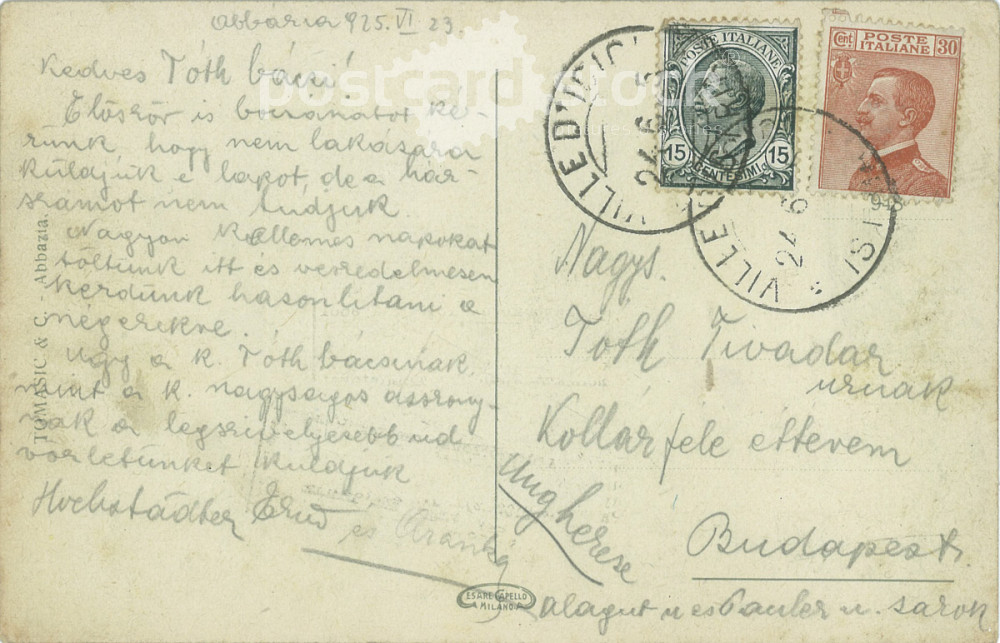 Abbázia 925. VI 23.
Kedves Tóth bácsi!
Először is bocsánatot ké-
rünk, hogy nem lakására
küldjük e lapot, de a ház-
számot nem tudjuk.
Nagyon kellemes napokat
töltünk itt és
kezdünk hasonlitani a
négerekre.
Ugy a k. Tóth bácsinak,
mint a k. nagyságos asszony-
nak a legszivélyesebb üd
vözletünket küldjük
Hochstädter Ernő és Aranka
TOMASIC & C. - Abbazia.
POSTE ITALIANE
15 15
CENTESIMI
Cent. POSTE ITALIANE 30
24 6
24 6
Nagys.
Tóth Tivadar
urnak
Kollár féle étterem
Ungherese
Budapest
Alagut u és Pauler u. sarok
CESARE CAPELLO
MILANO
postcard stock